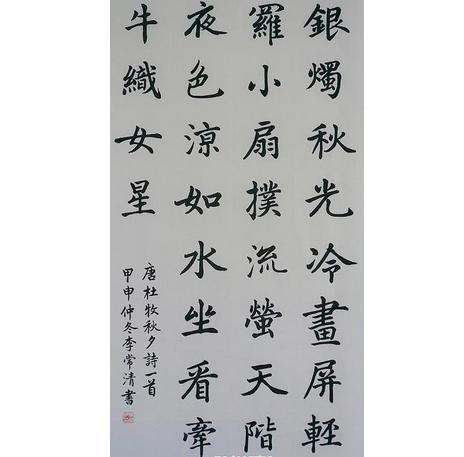 銀燭秋光冷畫屏輕
羅小扇撲流螢天階
夜色涼如水坐看牽
牛織女星
唐杜牧秋夕詩一首
甲申仲冬李常清書